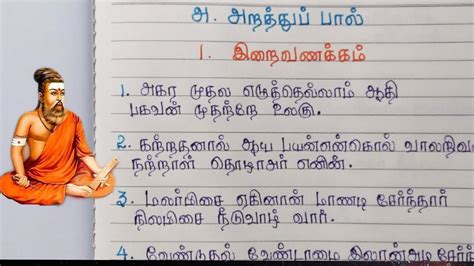 அ. அறத்துப் பால்
1. இறைவணக்கம்
1. அகர முதல எழுத்தெல்லாம் ஆதி
பகவன் முதற்றே உலகு.
2. கற்றதனால் ஆய பயன்என்கொல் வாலறிவ
நற்றாள் தொழாஅர் எனின்.
3. மலர்மிசை ஏகினான் மாணடி சேர்ந்தார்
நிலமிசை நீடுவாழ் வார்.
4. வேண்டுதல் வேண்டாமை இலான்அடி சேர்